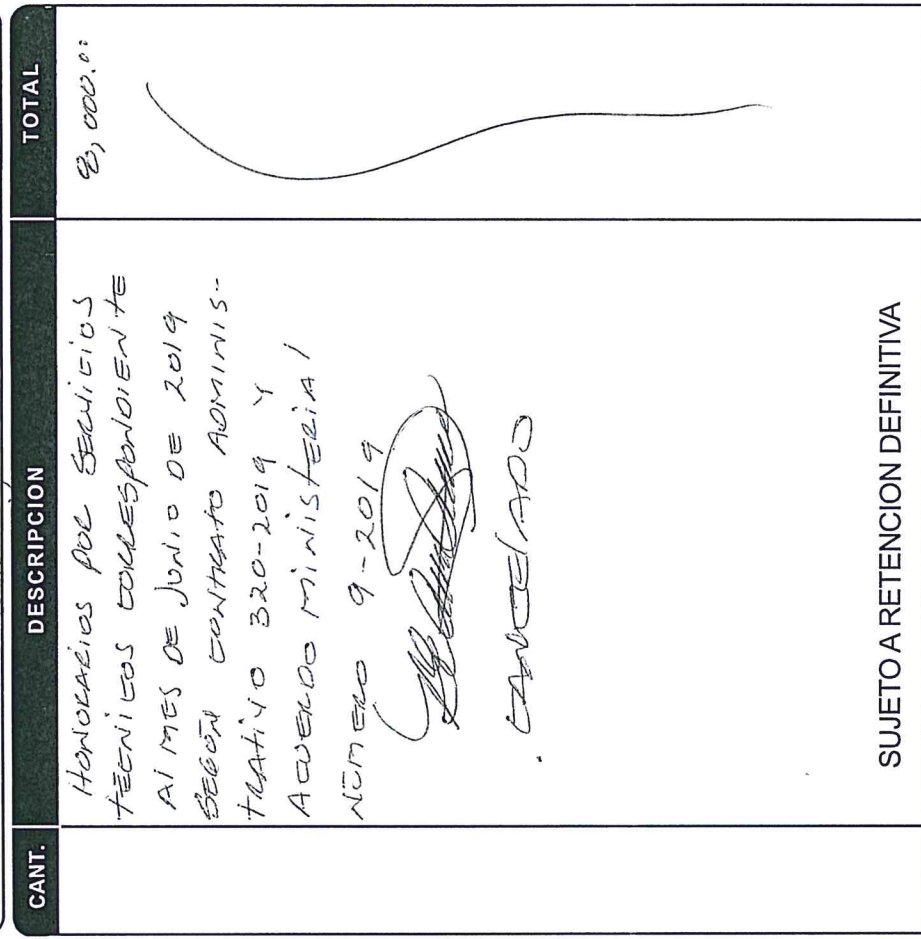 CANT. DESCRIPCION TOTAL
HONORARIOS POR SERVICIOS 8,000.00
TÉCNICOS CORRESPONDIENTE
AL MES DE JUNIO DE 2019
SEGÚN CONTRATO ADMINIS-
TRATIVO 320-2019 Y
ACUERDO MINISTERIAL
NÚMERO 9-2019
CANCELADO
SUJETO A RETENCION DEFINITIVA